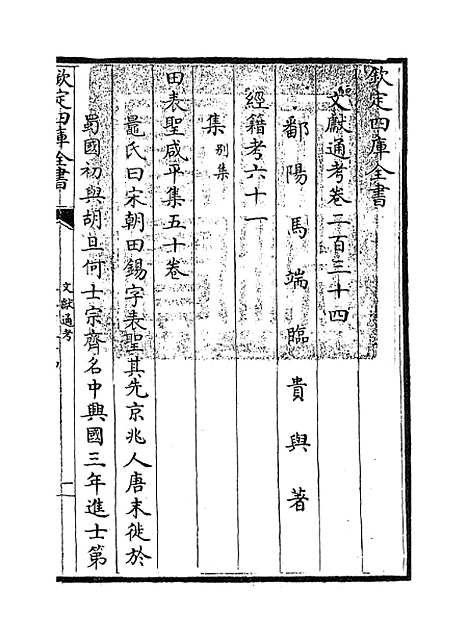 欽定四庫全書
文獻通考卷二百三十四
鄱陽馬端臨貴與著
經籍考六十一
集別集
田表聖咸平集五十卷
鼂氏曰宋朝田錫字表聖其先京兆人唐末徙於
蜀國初與胡旦何士宗齊名中興國三年進士第
欽定四庫全書
文獻通考
一